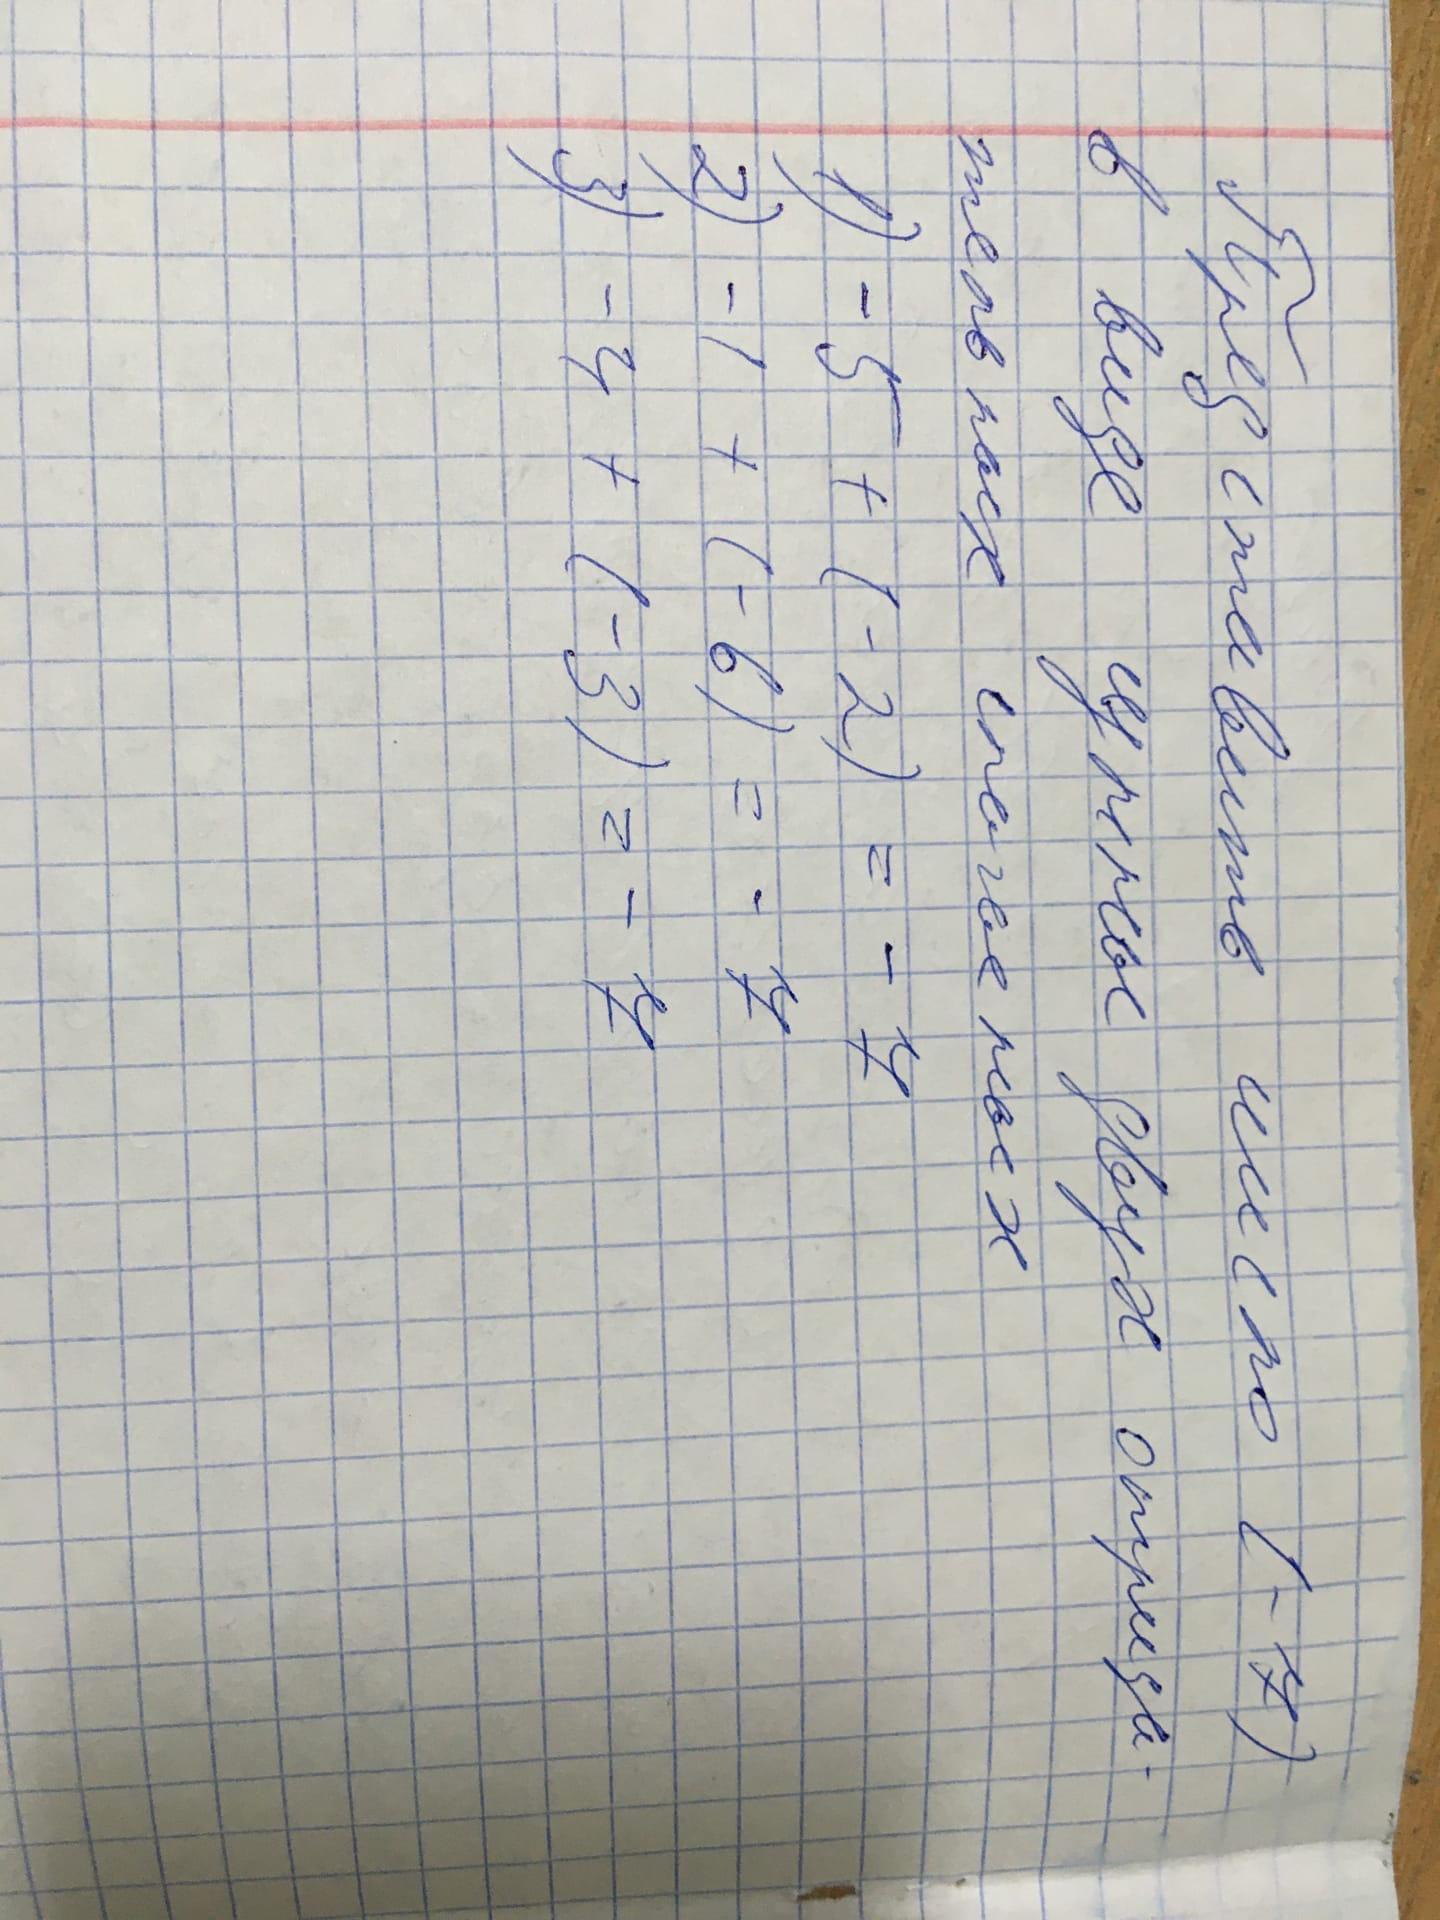 Представить число (-7)
в виде суммы двух отрица-
тельных слагаемых
1) -5 + (-2) = -7
2) -1 + (-6) = -7
3) -4 + (-3) = -7